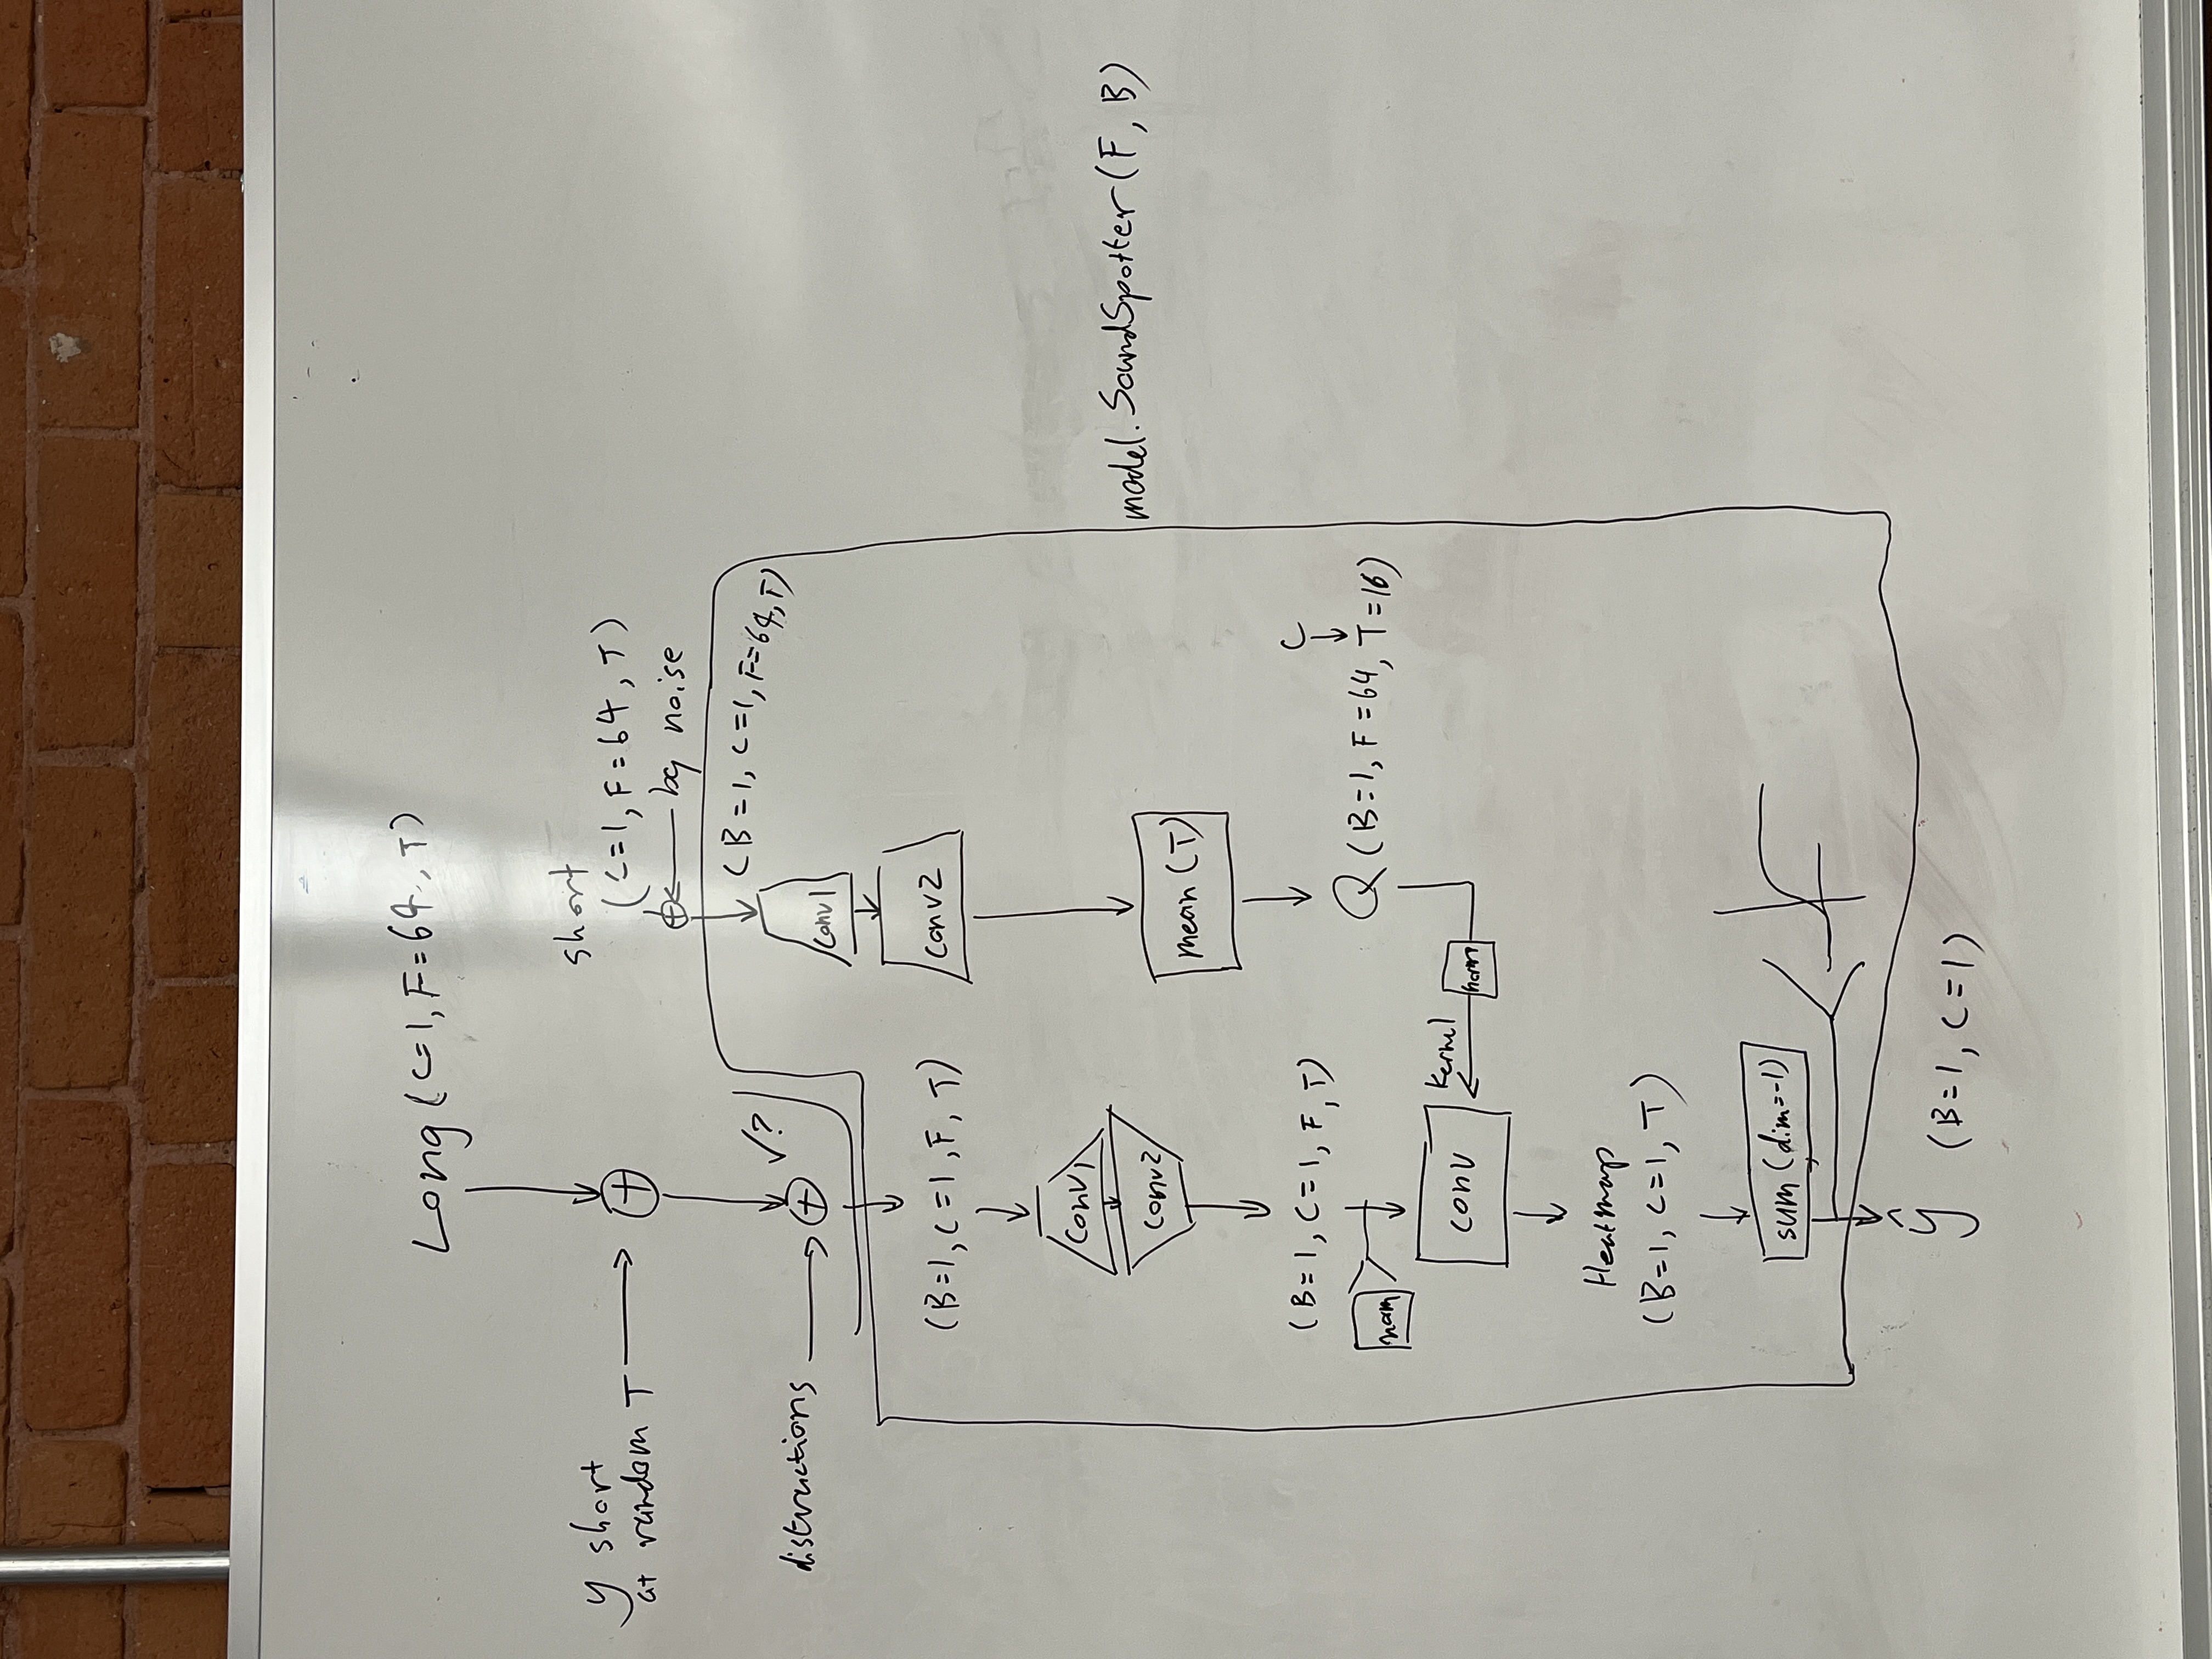 Long (C=1, F=64, T)
short
(C=1, F=64, T)
y short
at random T
bg noise
(B=1, C=1, F=64, T)
V?
distructions
conv1
conv2
(B=1, C=1, F, T)
conv1
conv2
mean (T)
model.SoundSpotter(F, B)
C
Q (B=1, F=64, T=16)
(B=1, C=1, F, T)
norm
norm
kernel
conv
Heatmap
(B=1, C=1, T)
sum (dim=-1)
ŷ
(B=1, C=1)